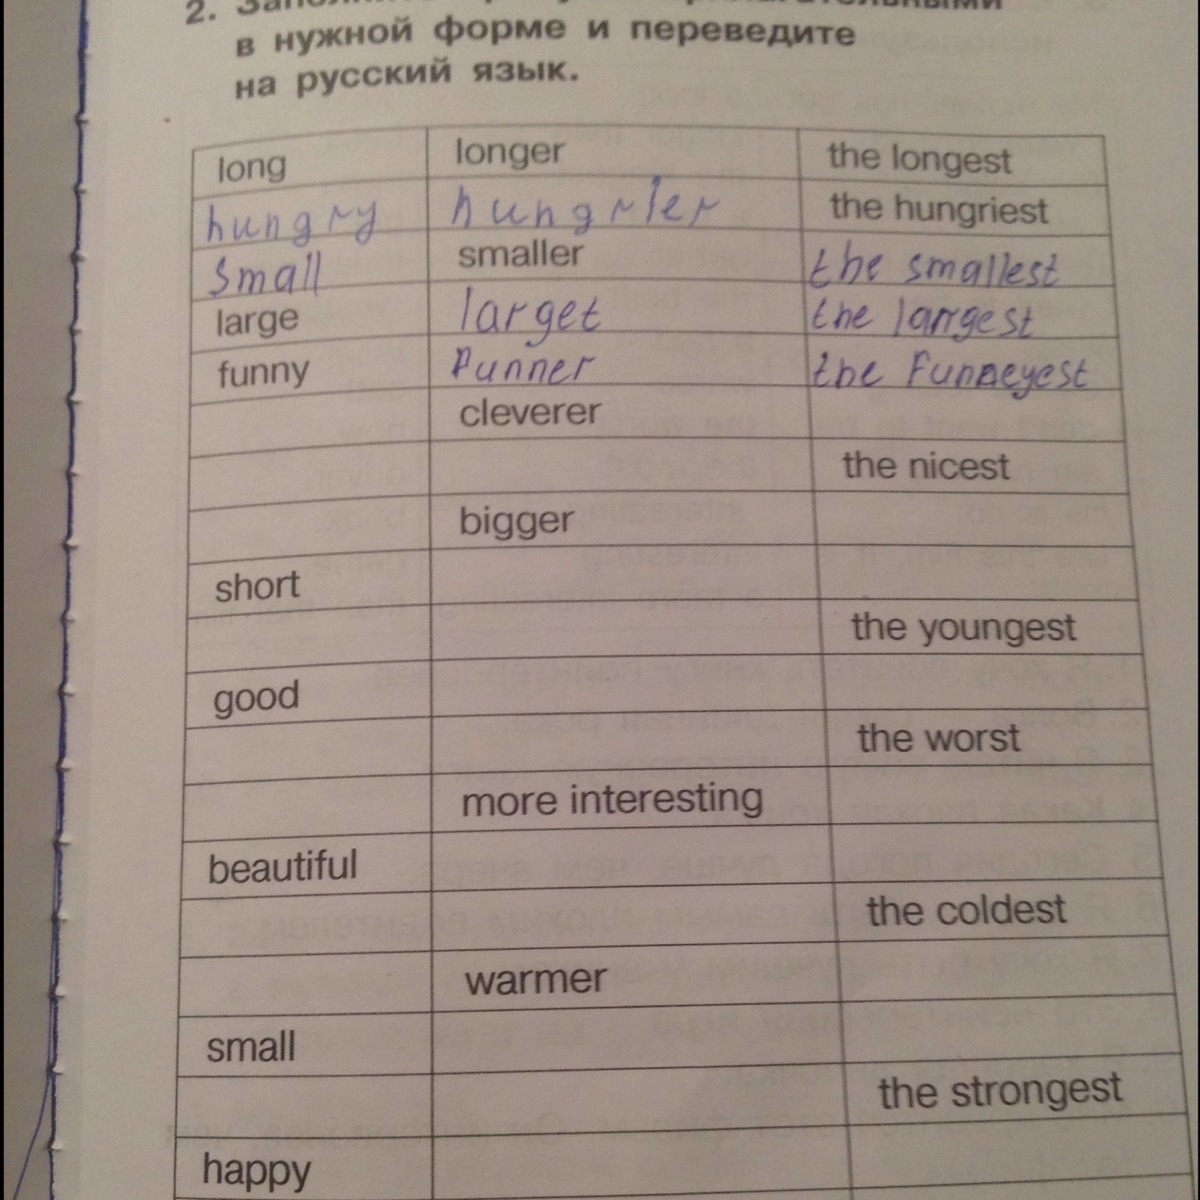 2. Заполните
в нужной форме и переведите
на русский язык.
long longer the longest
hungry hungrier the hungriest
small smaller the smallest
large larget the largest
funny Punner the Funneyest
cleverer
the nicest
bigger
short
the youngest
good
the worst
more interesting
beautiful
the coldest
warmer
small
the strongest
happy